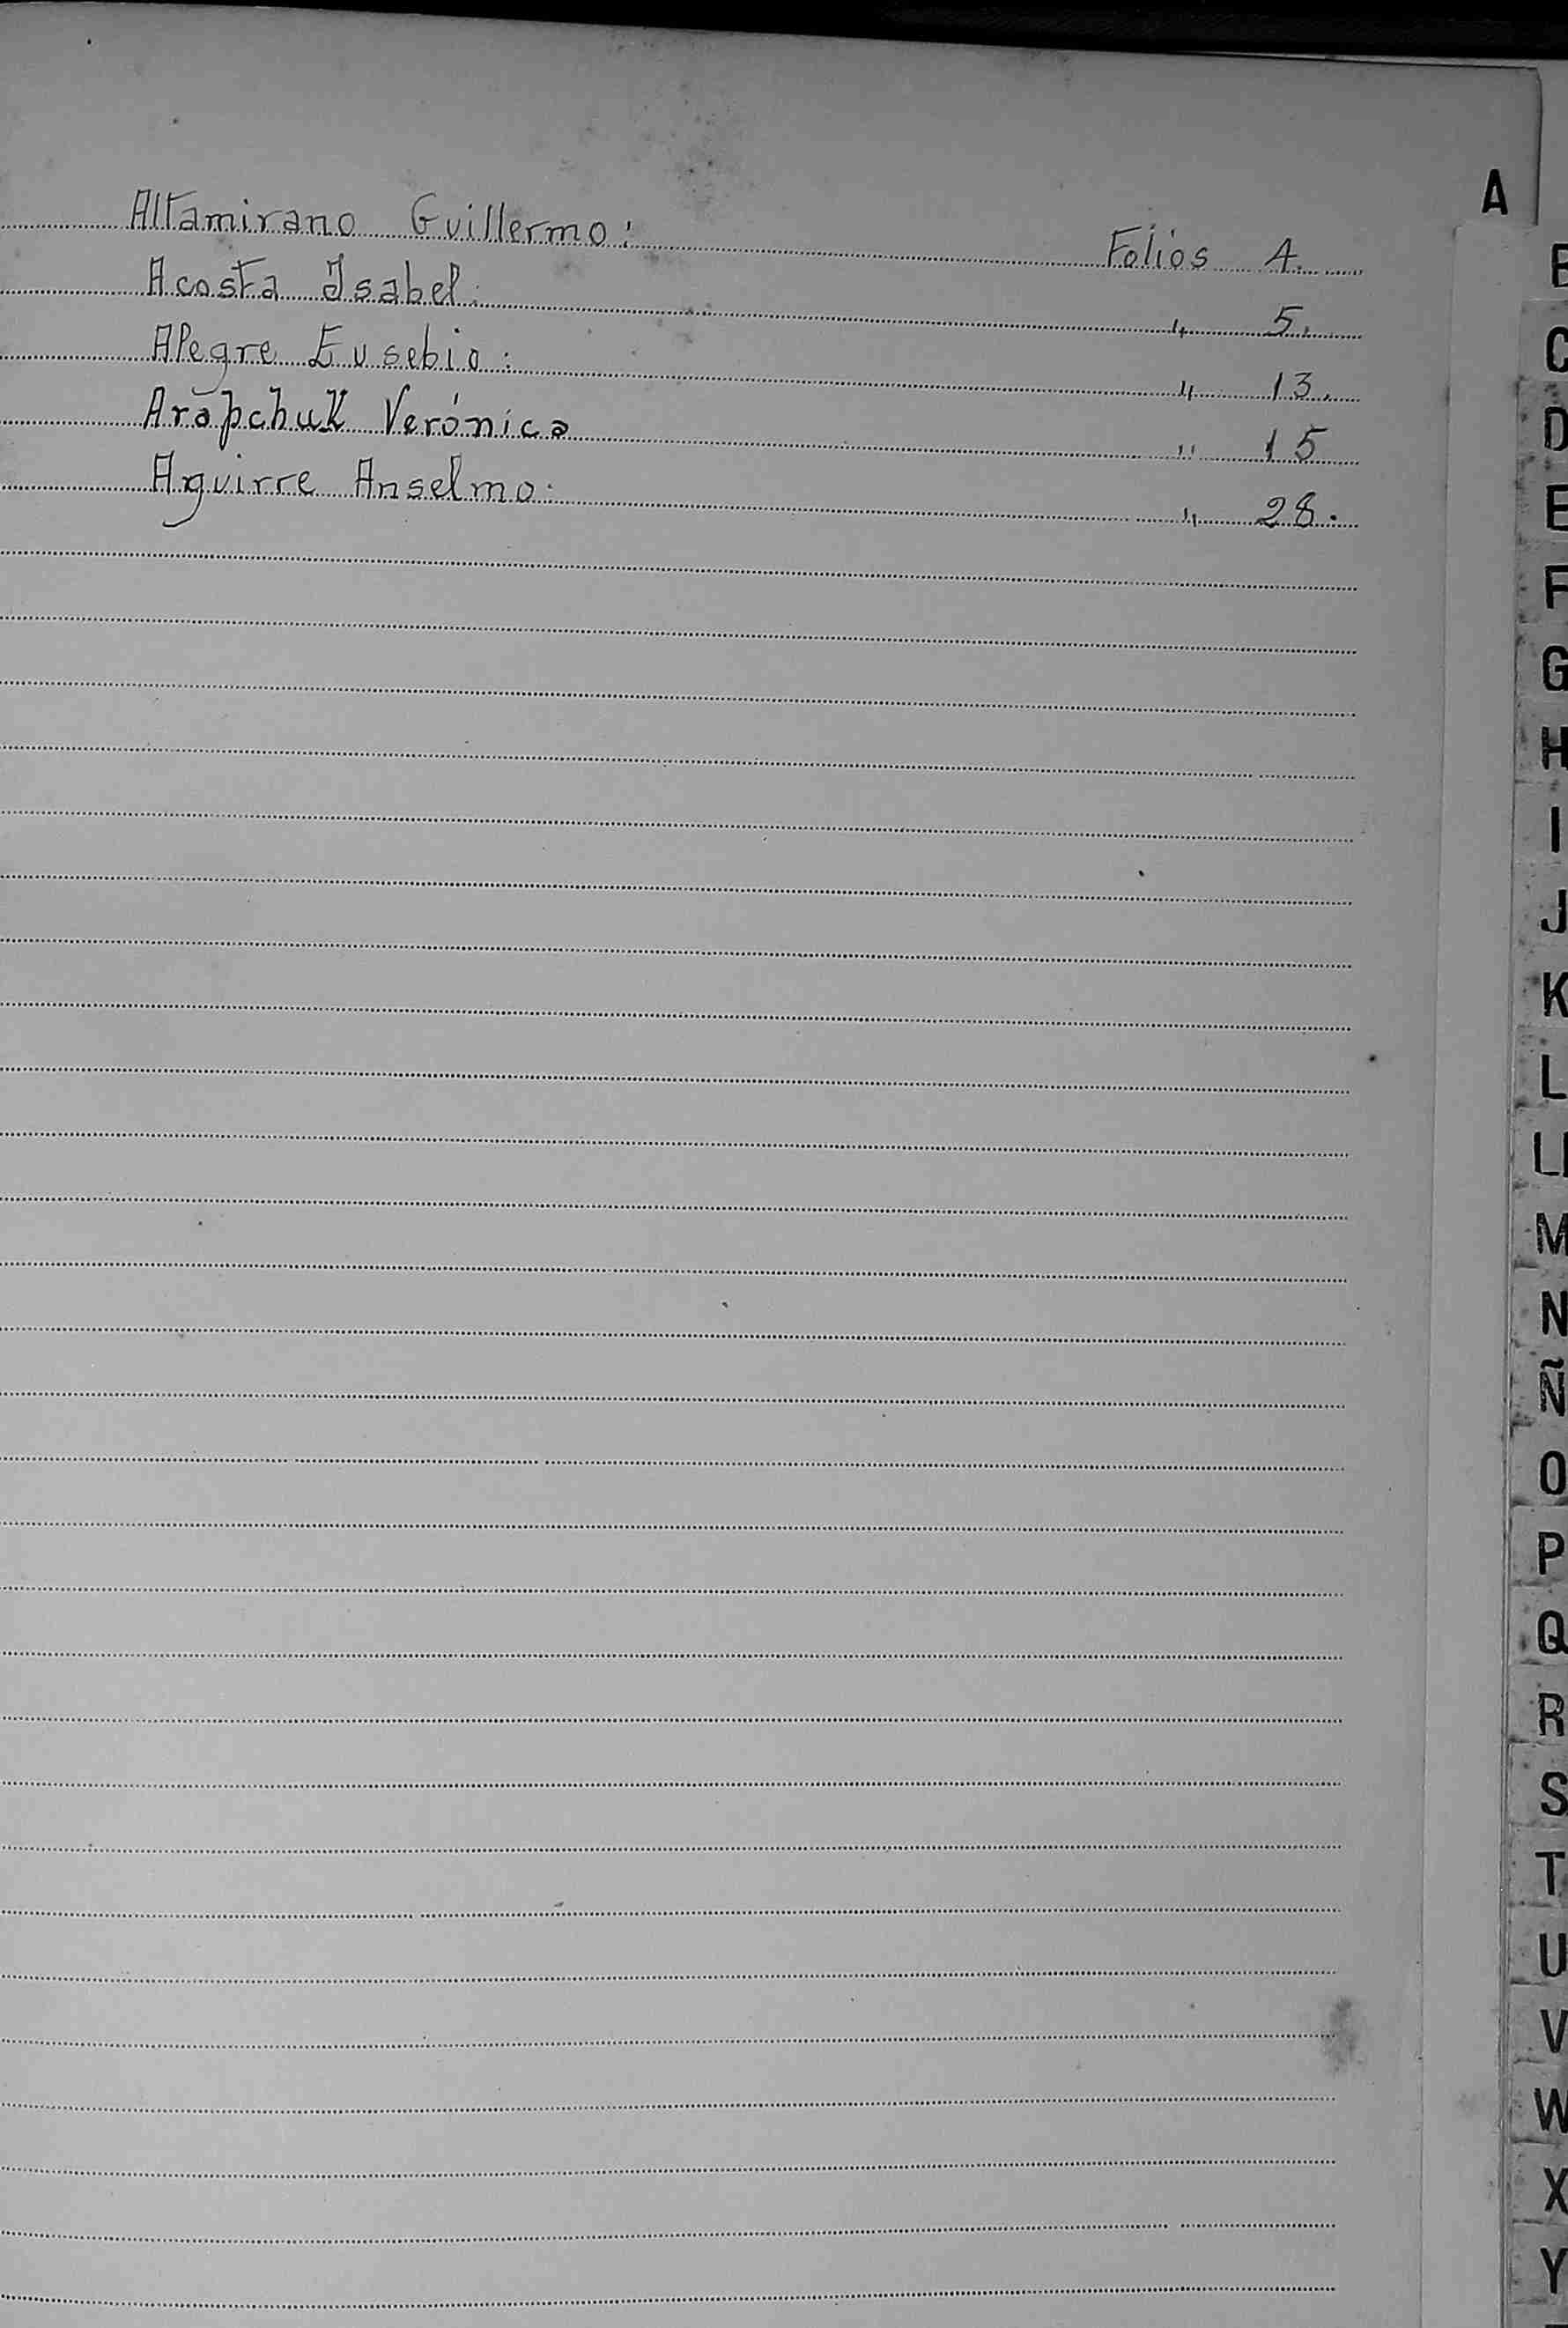 A
Altamirano Guillermo: Folios 4.
Acosta Isabel: " 5.
Alegre Eusebio: " 13.
Arapchuk Verónica " 15
Aguirre Anselmo: " 28.
C
D
E
F
G
H
I
J
K
L
Ll
M
N
Ñ
O
P
Q
R
S
T
U
V
W
X
Y